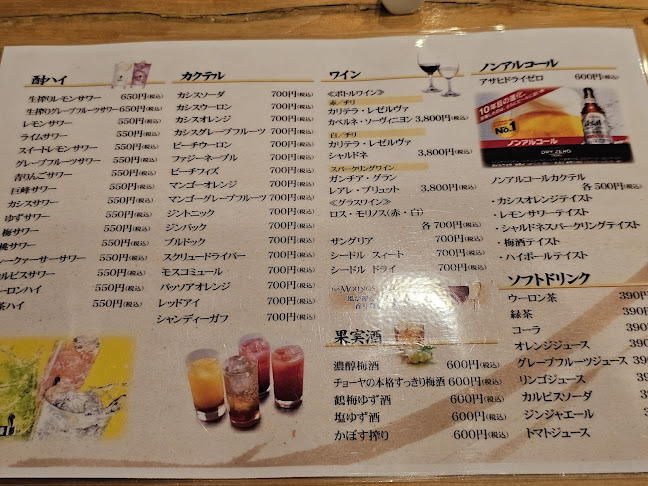 酎ハイ
生搾りレモンサワー 650円(税込)
生搾りグレープフルーツサワー 650円(税込)
レモンサワー 550円(税込)
ライムサワー 550円(税込)
スイートレモンサワー 550円(税込)
グレープフルーツサワー 550円(税込)
青りんごサワー 550円(税込)
巨峰サワー 550円(税込)
カシスサワー 550円(税込)
ゆずサワー 550円(税込)
梅サワー 550円(税込)
桃サワー 550円(税込)
ークァーサーサワー 550円(税込)
ルピスサワー 550円(税込)
ーロンハイ 550円(税込)
茶ハイ 550円(税込)
カクテル
カシスソーダ 700円(税込)
カシスウーロン 700円(税込)
カシスオレンジ 700円(税込)
カシスグレープフルーツ 700円(税込)
ピーチウーロン 700円(税込)
ファジーネーブル 700円(税込)
ピーチフィズ 700円(税込)
マンゴーオレンジ 700円(税込)
マンゴーグレープフルーツ 700円(税込)
ジントニック 700円(税込)
ジンバック 700円(税込)
ブルドック 700円(税込)
スクリュードライバー 700円(税込)
モスコミュール 700円(税込)
パッソアオレンジ 700円(税込)
レッドアイ 700円(税込)
シャンディーガフ 700円(税込)
ワイン
≪ボトルワイン≫
赤/チリ
カリテラ・レゼルヴァ
カベルネ・ソーヴィニヨン 3,800円(税込)
白/チリ
カリテラ・レゼルヴァ
シャルドネ 3,800円(税込)
スパークリングワイン
ガンチア・グラン
レアレ・ブリュット 3,800円(税込)
≪グラスワイン≫
ロス・モリノス(赤・白)
各700円(税込)
サングリア 700円(税込)
シードル スィート 700円(税込)
シードル ドライ 700円(税込)
果実酒
濃醇梅酒 600円(税込)
チョーヤの本格すっきり梅酒 600円(税込)
鶴梅ゆず酒 600円(税込)
塩ゆず酒 600円(税込)
かぼす搾り 600円(税込)
ノンアルコール
アサヒドライゼロ 600円(税込)
10年目の進化
No.1
ノンアルコール
DRY ZERO
ノンアルコールカクテル
各 500円(税込)
・カシスオレンジテイスト
・レモンサワーテイスト
・シャルドネスパークリングテイスト
・梅酒テイスト
・ハイボールテイスト
ソフトドリンク
ウーロン茶 390円
緑茶 390
コーラ 390
オレンジジュース 390
グレープフルーツジュース 390
リンゴジュース 390
カルピスソーダ 390
ジンジャエール 390
トマトジュース 390